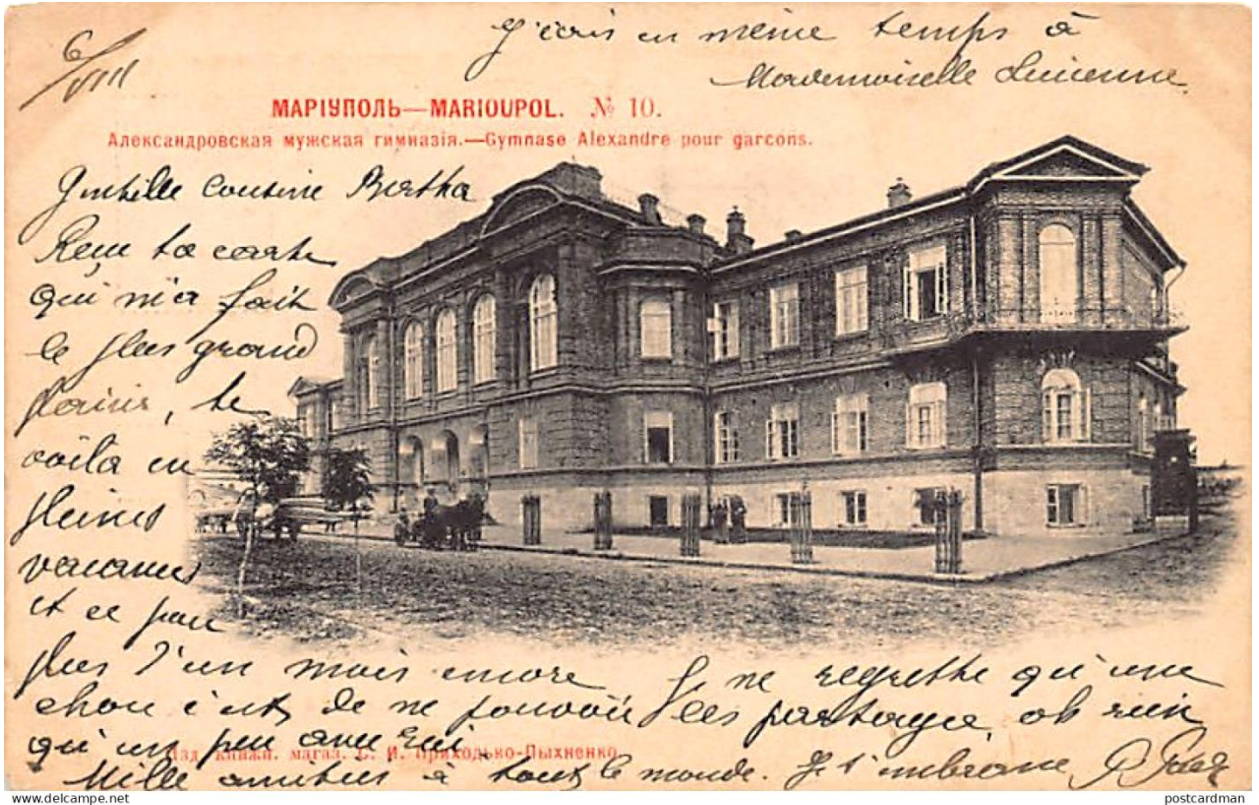 6/VIII
J'écris en même temps à
Mademoiselle Lucienne
МАРІУПОЛЬ—MARIOUPOL. № 10.
Александровская мужская гимназія.—Gymnase Alexandre pour garcons.
Gentille cousine Bertha
Reçu ta carte
qui m'a fait
le plus grand
plaisir, te
voilà en
pleines
vacances
et ce pour
plus d'un mois encore
Je ne regrette qu'une
chose c'est de ne pouvoir les partager, oh rien
qu'un peu
Изд. книжн. магаз. С. И. Приходько-Пыхненко.
Mille amitiés à tout le monde. Je t'embrasse
postcardman